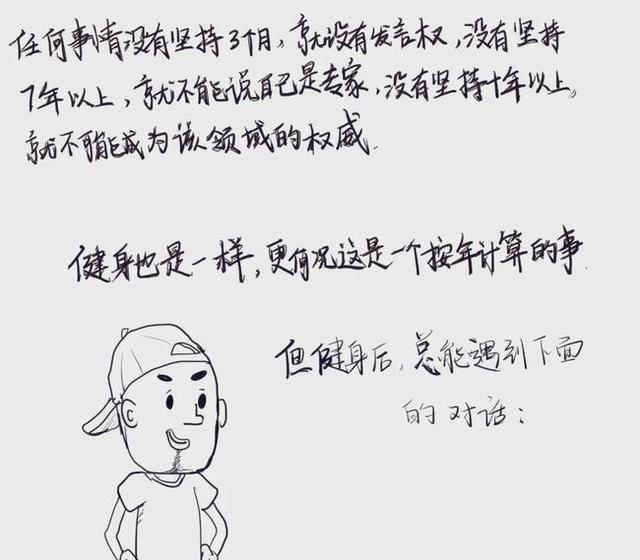 任何事情没有坚持3个月,就没有发言权,没有坚持
7年以上,就不能说自己是专家,没有坚持十年以上,
就不可能成为该领域的权威.
健身也是一样,更何况这是一个按年计算的事.
但健身后,总能遇到下面
的对话: